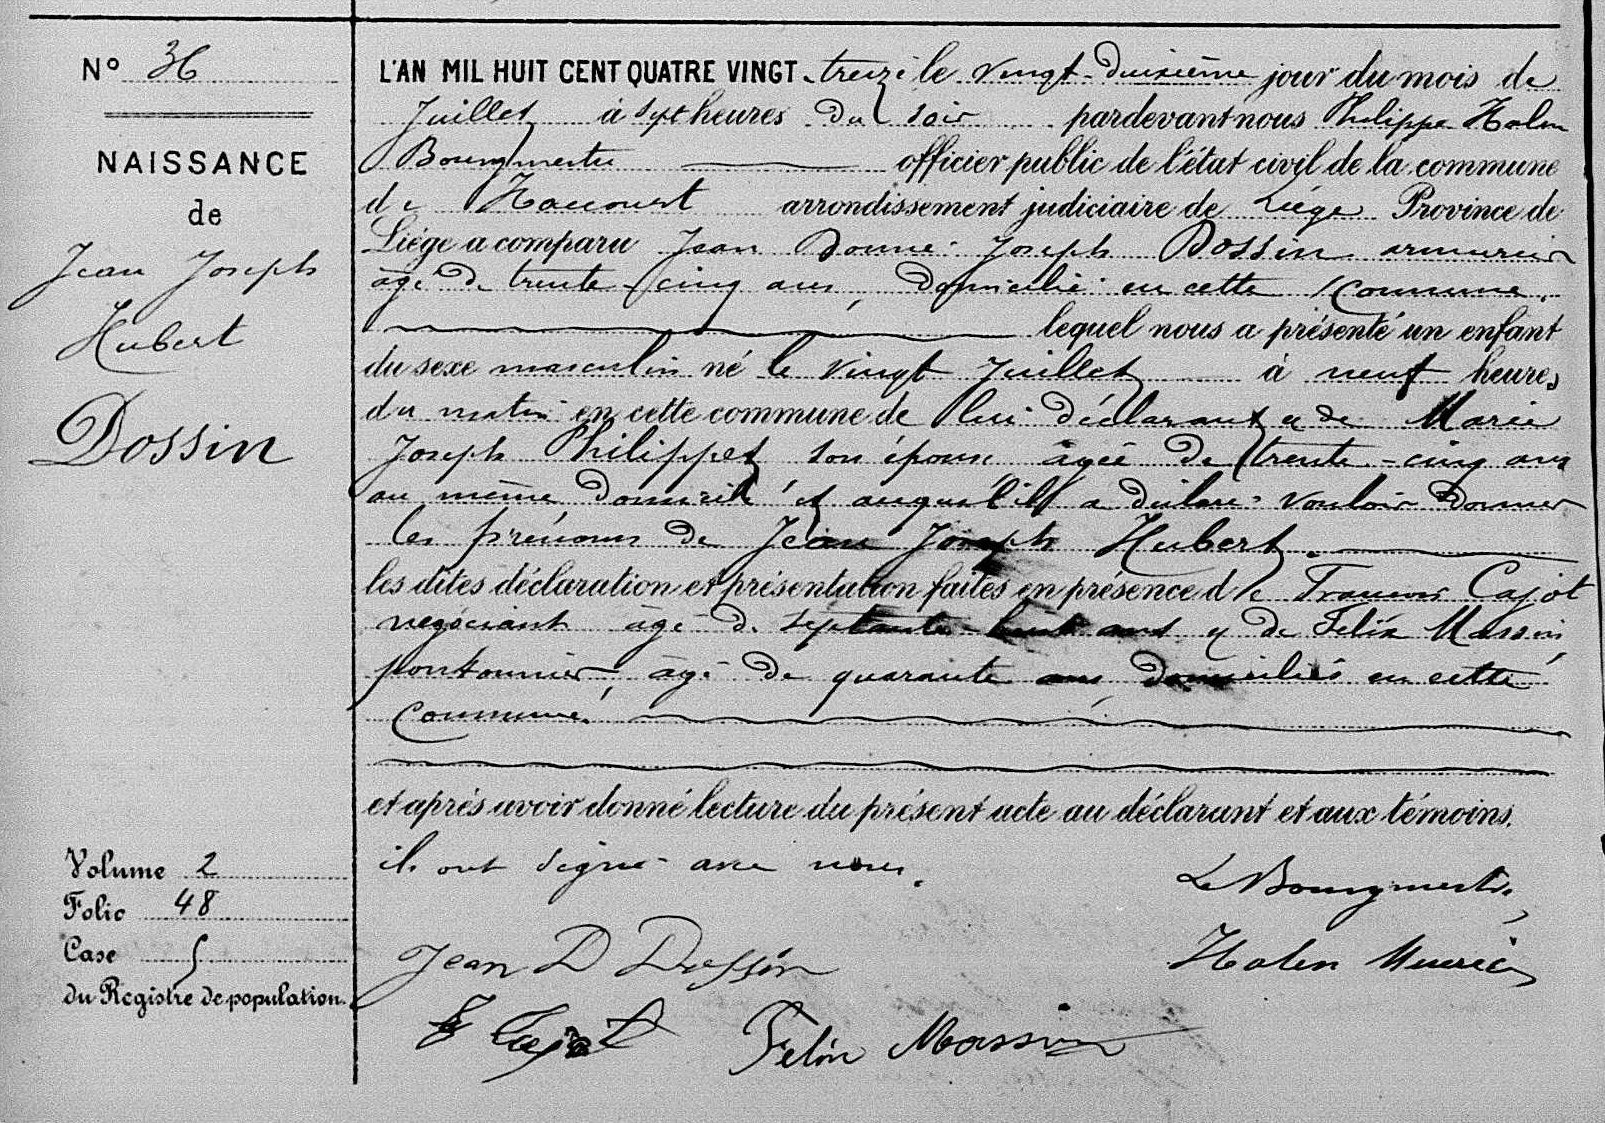 N° 36
NAISSANCE
de
Jean Joseph
Hubert
Dossin
L'AN MIL HUIT CENT QUATRE VINGT-treize le vingt-deuxième jour du mois de
Juillet à sept heures du soir pardevant nous Philippe Halen
Bourgmestre officier public de l'état civil de la commune
de Haccourt arrondissement judiciaire de Liége Province de
Liége a comparu Jean Donné Joseph Dossin armurier
âgé de trente-cinq ans, domicilié en cette commune.
lequel nous a présenté un enfant
du sexe masculin né le vingt Juillet à neuf heures
du matin en cette commune de lui déclarant et de Marie
Joseph Philippet son épouse âgée de trente-cinq ans
au même domicile et auquel il a déclaré vouloir donner
les prénoms de Jean Joseph Hubert.
les dites déclaration et présentation faites en présence de François Cajot
négociant âgé de septante-huit ans et de Felix Massin,
pontonnier, âgé de quarante ans, domiciliés en cette
commune.
et après avoir donné lecture du présent acte au déclarant et aux témoins.
ils ont signé avec nous.
Le Bourgmestre,
Jean D Dossin
Halen
F Cajot Felix Massin
Volume 2
Folio 48
Case 5
du Registre de population.